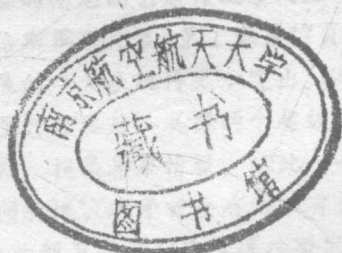 南京航空航天大学
藏书
图书馆